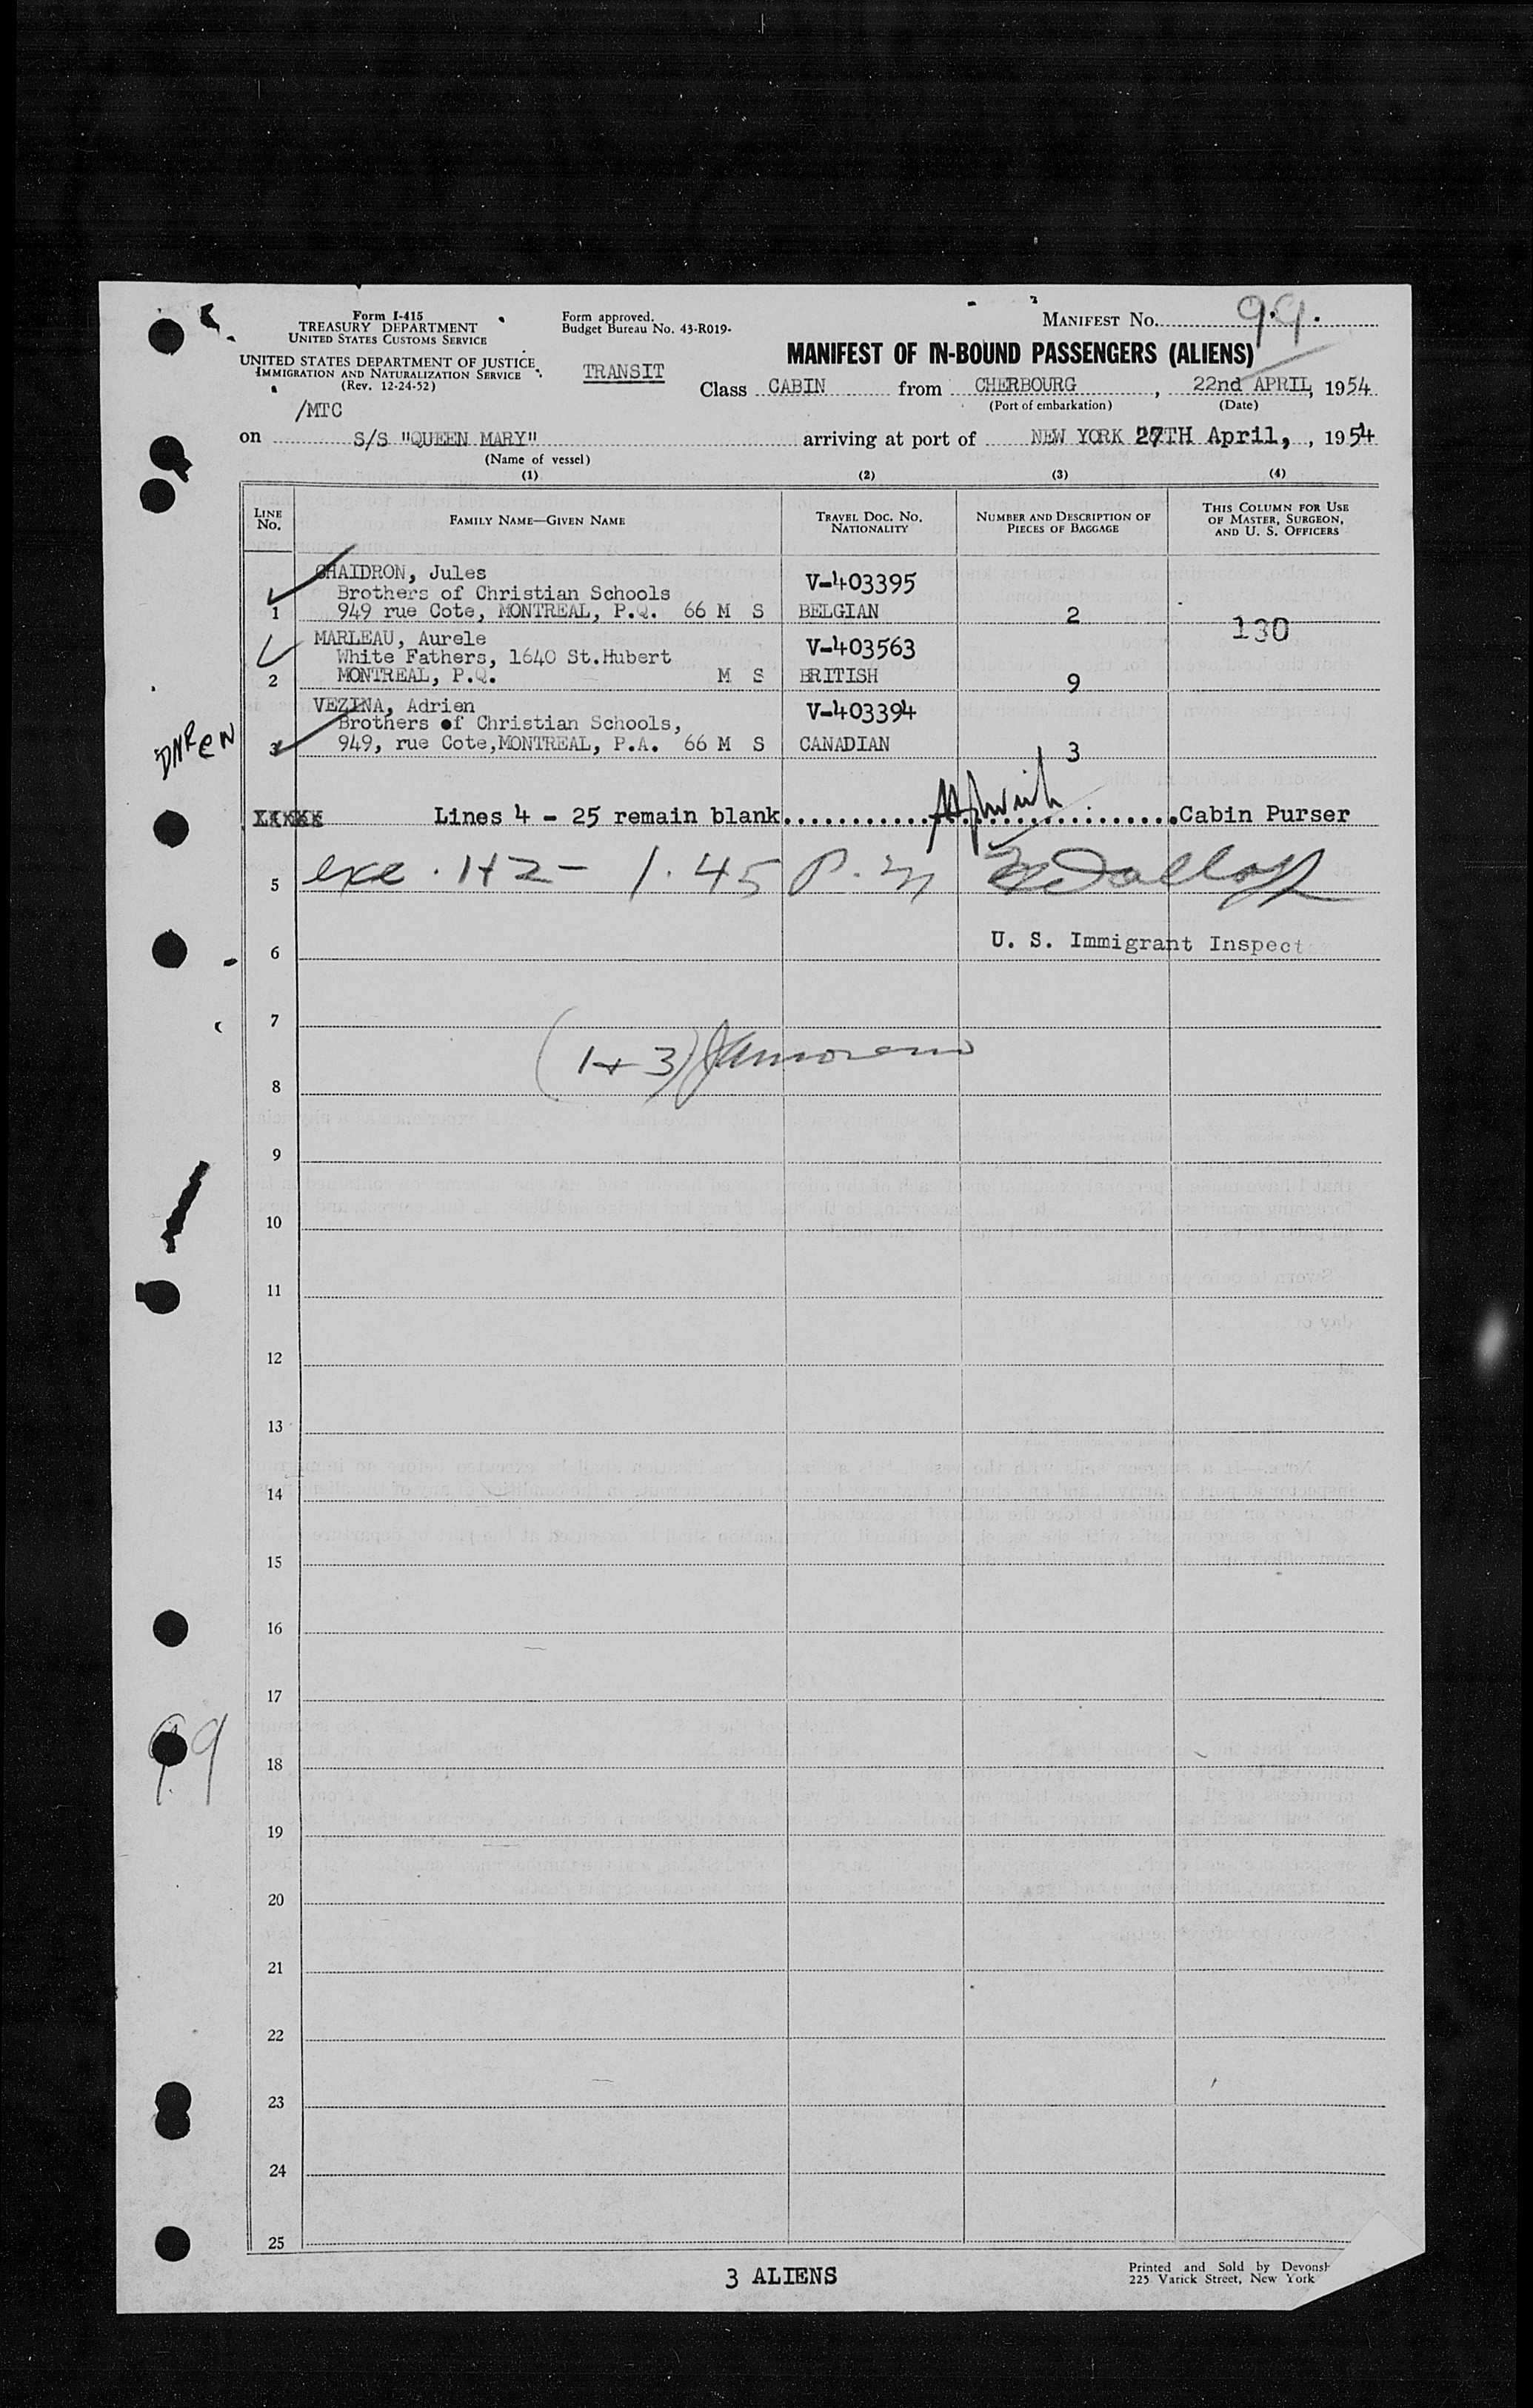 Form I-415
TREASURY DEPARTMENT
UNITED STATES CUSTOMS SERVICE
UNITED STATES DEPARTMENT OF JUSTICE
IMMIGRATION AND NATURALIZATION SERVICE
(Rev. 12-24-52)
/MTC
Form approved.
Budget Bureau No. 43-R019-
TRANSIT
MANIFEST NO. 99.
MANIFEST OF IN-BOUND PASSENGERS (ALIENS)
Class CABIN from CHERBOURG, 22nd APRIL, 1954
(Port of embarkation) (Date)
on S/S "QUEEN MARY" arriving at port of NEW YORK 27TH April, , 1954
(Name of vessel)
(1) (2) (3) (4)
LINE NO.
FAMILY NAME—GIVEN NAME
TRAVEL DOC. NO. NATIONALITY
NUMBER AND DESCRIPTION OF PIECES OF BAGGAGE
THIS COLUMN FOR USE OF MASTER, SURGEON, AND U. S. OFFICERS
CHAIDRON, Jules V-403395
Brothers of Christian Schools
1 949 rue Cote, MONTREAL, P.Q. 66 M S BELGIAN 2
130
MARLEAU, Aurele V-403563
White Fathers, 1640 St.Hubert
2 MONTREAL, P.Q. M S BRITISH 9
VEZINA, Adrien V-403394
Brothers of Christian Schools,
3 949, rue Cote,MONTREAL, P.A. 66 M S CANADIAN 3
Lines 4 - 25 remain blank..............................Cabin Purser
5 exe. 1+2- 1.45 P.M
U. S. Immigrant Inspect
6
7
(1+3)
8
9
10
11
12
13
14
15
16
17
99
18
19
20
21
22
23
24
25
3 ALIENS
Printed and Sold by Devonsh
225 Varick Street, New York